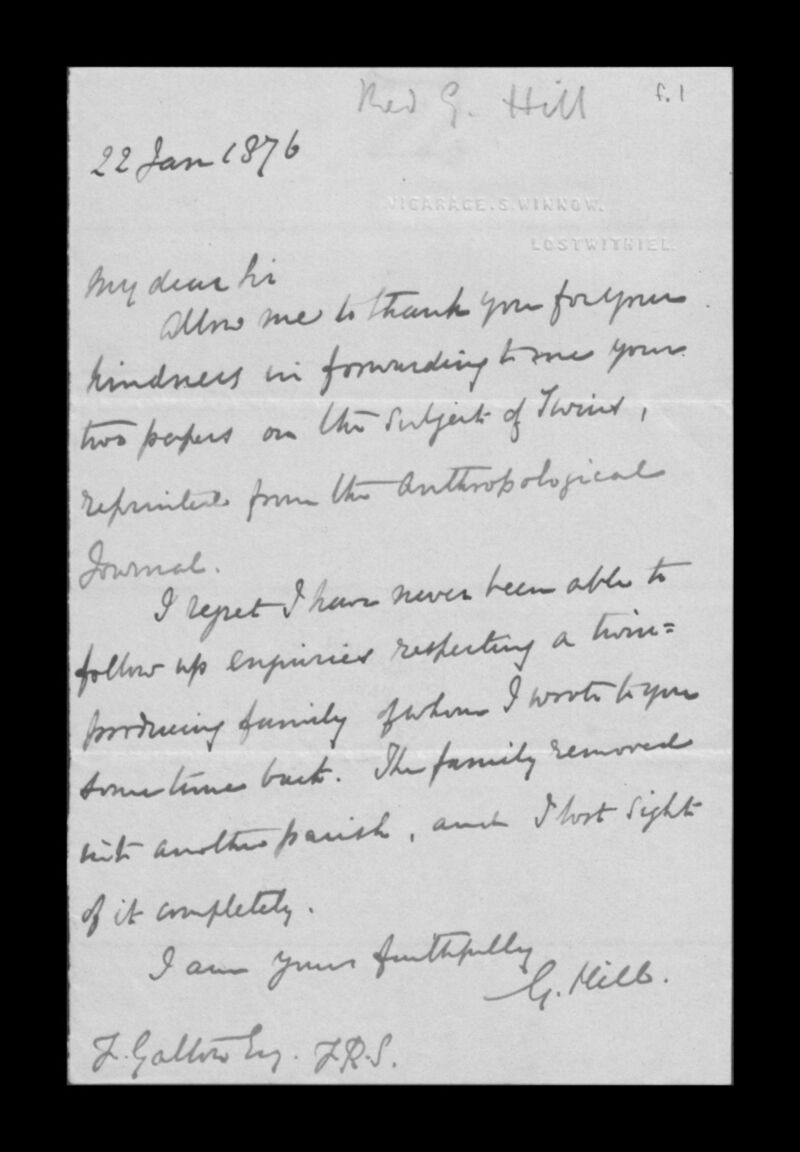 Rev G. Hill
f.1
22 Jan 1876
VICARAGE.S.WINNOW.
LOSTWITHIEL.
My dear Sir
Allow me to thank you for your
kindness in forwarding to me your
two papers on the subject of Twins,
reprinted from the Anthropological
Journal.
I regret I have never been able to
follow up enquiries respecting a twin=
producing family of whom I wrote to you
some time back. The family removed
into another parish, and I lost sight
of it completely.
I am yours faithfully
G. Hill.
F. Galton Esq. F.R.S.